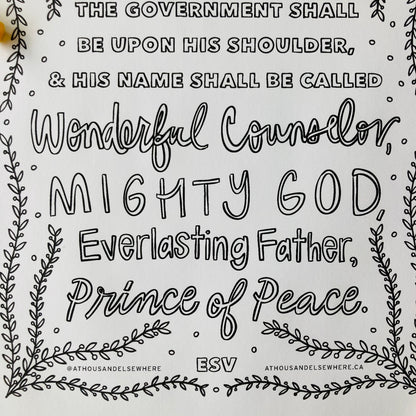 THE GOVERNMENT SHALL
BE UPON HIS SHOULDER,
& HIS NAME SHALL BE CALLED
Wonderful Counselor,
MIGHTY GOD,
Everlasting Father,
Prince of Peace.
@ATHOUSANDELSEWHERE
ESV
ATHOUSANDELSEWHERE.CA